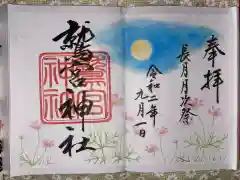 奉拝
長月月次祭
令和二年
九月一日
鷲宮神社